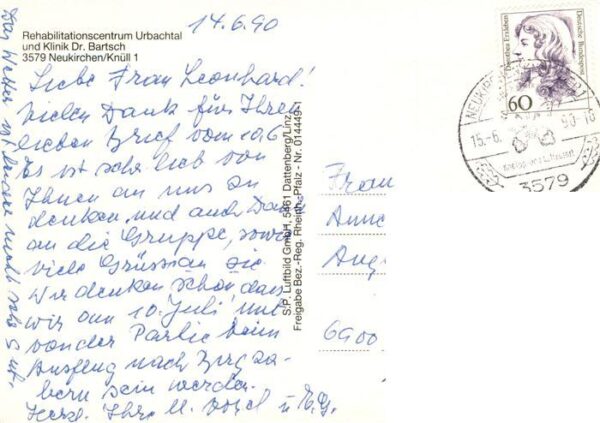 14.6.90
Rehabilitationscentrum Urbachtal
und Klinik Dr. Bartsch
3579 Neukirchen/Knüll 1
Liebe Frau Leonhard!
Vielen Dank für Ihren
lieben Brief vom 10.6
Es ist sehr lieb von
Ihnen an uns zu
denken und auch Dank
an die Gruppe, sowie
viele Grüsse an Sie
Wir denken schon dass
wir am 10. Juli mit
von der Partie beim
Ausflug nach
bern sein werden.
Herzl. Ihre u.
Das Wetter ist leider nicht sehr gut.
S.P. Luftbild GmbH, 5461 Dattenberg/Linz,
Freigabe Bez.-Reg. Rheinh.-Pfalz - Nr. 014449-1
Dorothea Erxleben
Deutsche Bundespost
60
15.-6.
90-18
3579
Frau
Anne
Aug
6900